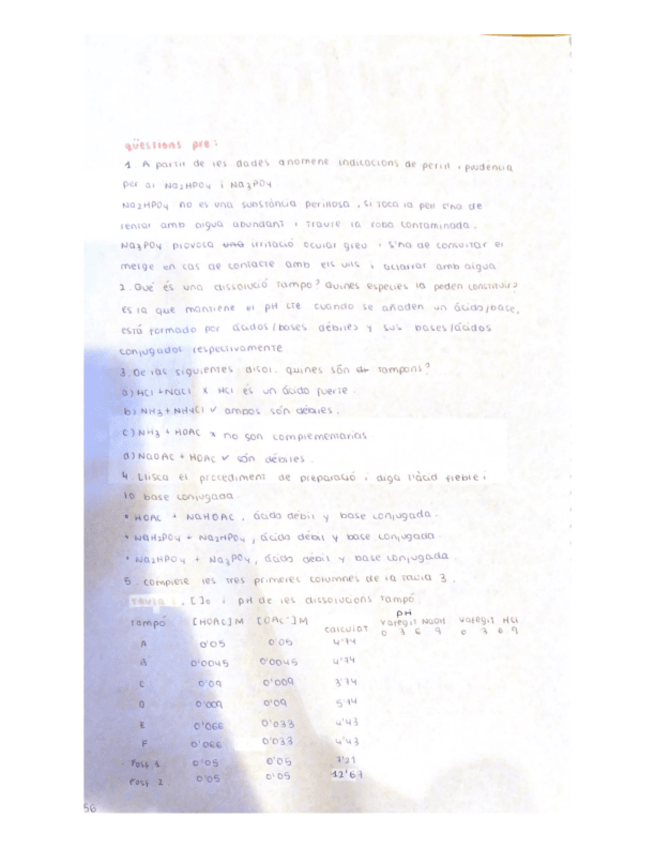 qüestions pre:
1. A partir de les dades anomene indicacions de perill i prudencia
per al Na2HPO4 i Na3PO4
Na2HPO4 no es una substància perillosa, si toca la pell s'ha de
rentar amb aigua abundant i traure la roba contaminada.
Na3PO4 provoca una irritació ocular greu i s'ha de consultar el
metge en cas de contacte amb els ulls i aclarar amb aigua
2. Qué és una dissolució tampo? Quines especies la peden constituir?
és la que mantiene el pH cte cuando se añaden un ácido/base,
está formado por ácidos/bases débiles y sus bases/ácidos
conjugados respectivamente
3. De las siguientes disol. quines són tampons?
a) HCl + NaCl x HCl és un ácido fuerte.
b) NH3 + NH4Cl ✓ ambos són débiles.
c) NH3 + HOAc x no son complementarias
d) NaOAc + HOAc ✓ són débiles.
4. Llisca el procediment de preparació i diga l'àcid feble i
la base conjugada
* HOAc + NaHOAc, ácido débil y base conjugada.
* NaH2PO4 + Na2HPO4, ácido débil y base conjugada.
* Na2HPO4 + Na3PO4, ácido débil y base conjugada.
5. Complete les tres primeres columnes de la taula 3.
[ ]o i pH de les dissolucions tampó.
pH
Tampó [HOAc]M [OAc-]M calculat Varegit NaOH Varegit HCl
0 3 6 9 0 3 6 9
A 0'05 0'05 4'74
B 0'0045 0'0045 4'74
C 0'09 0'009 3'74
D 0'009 0'09 5'74
E 0'066 0'033 4'43
F 0'066 0'033 4'43
Fosf 1. 0'05 0'05 7'21
Fosf 2. 0'05 0'05 12'67
56